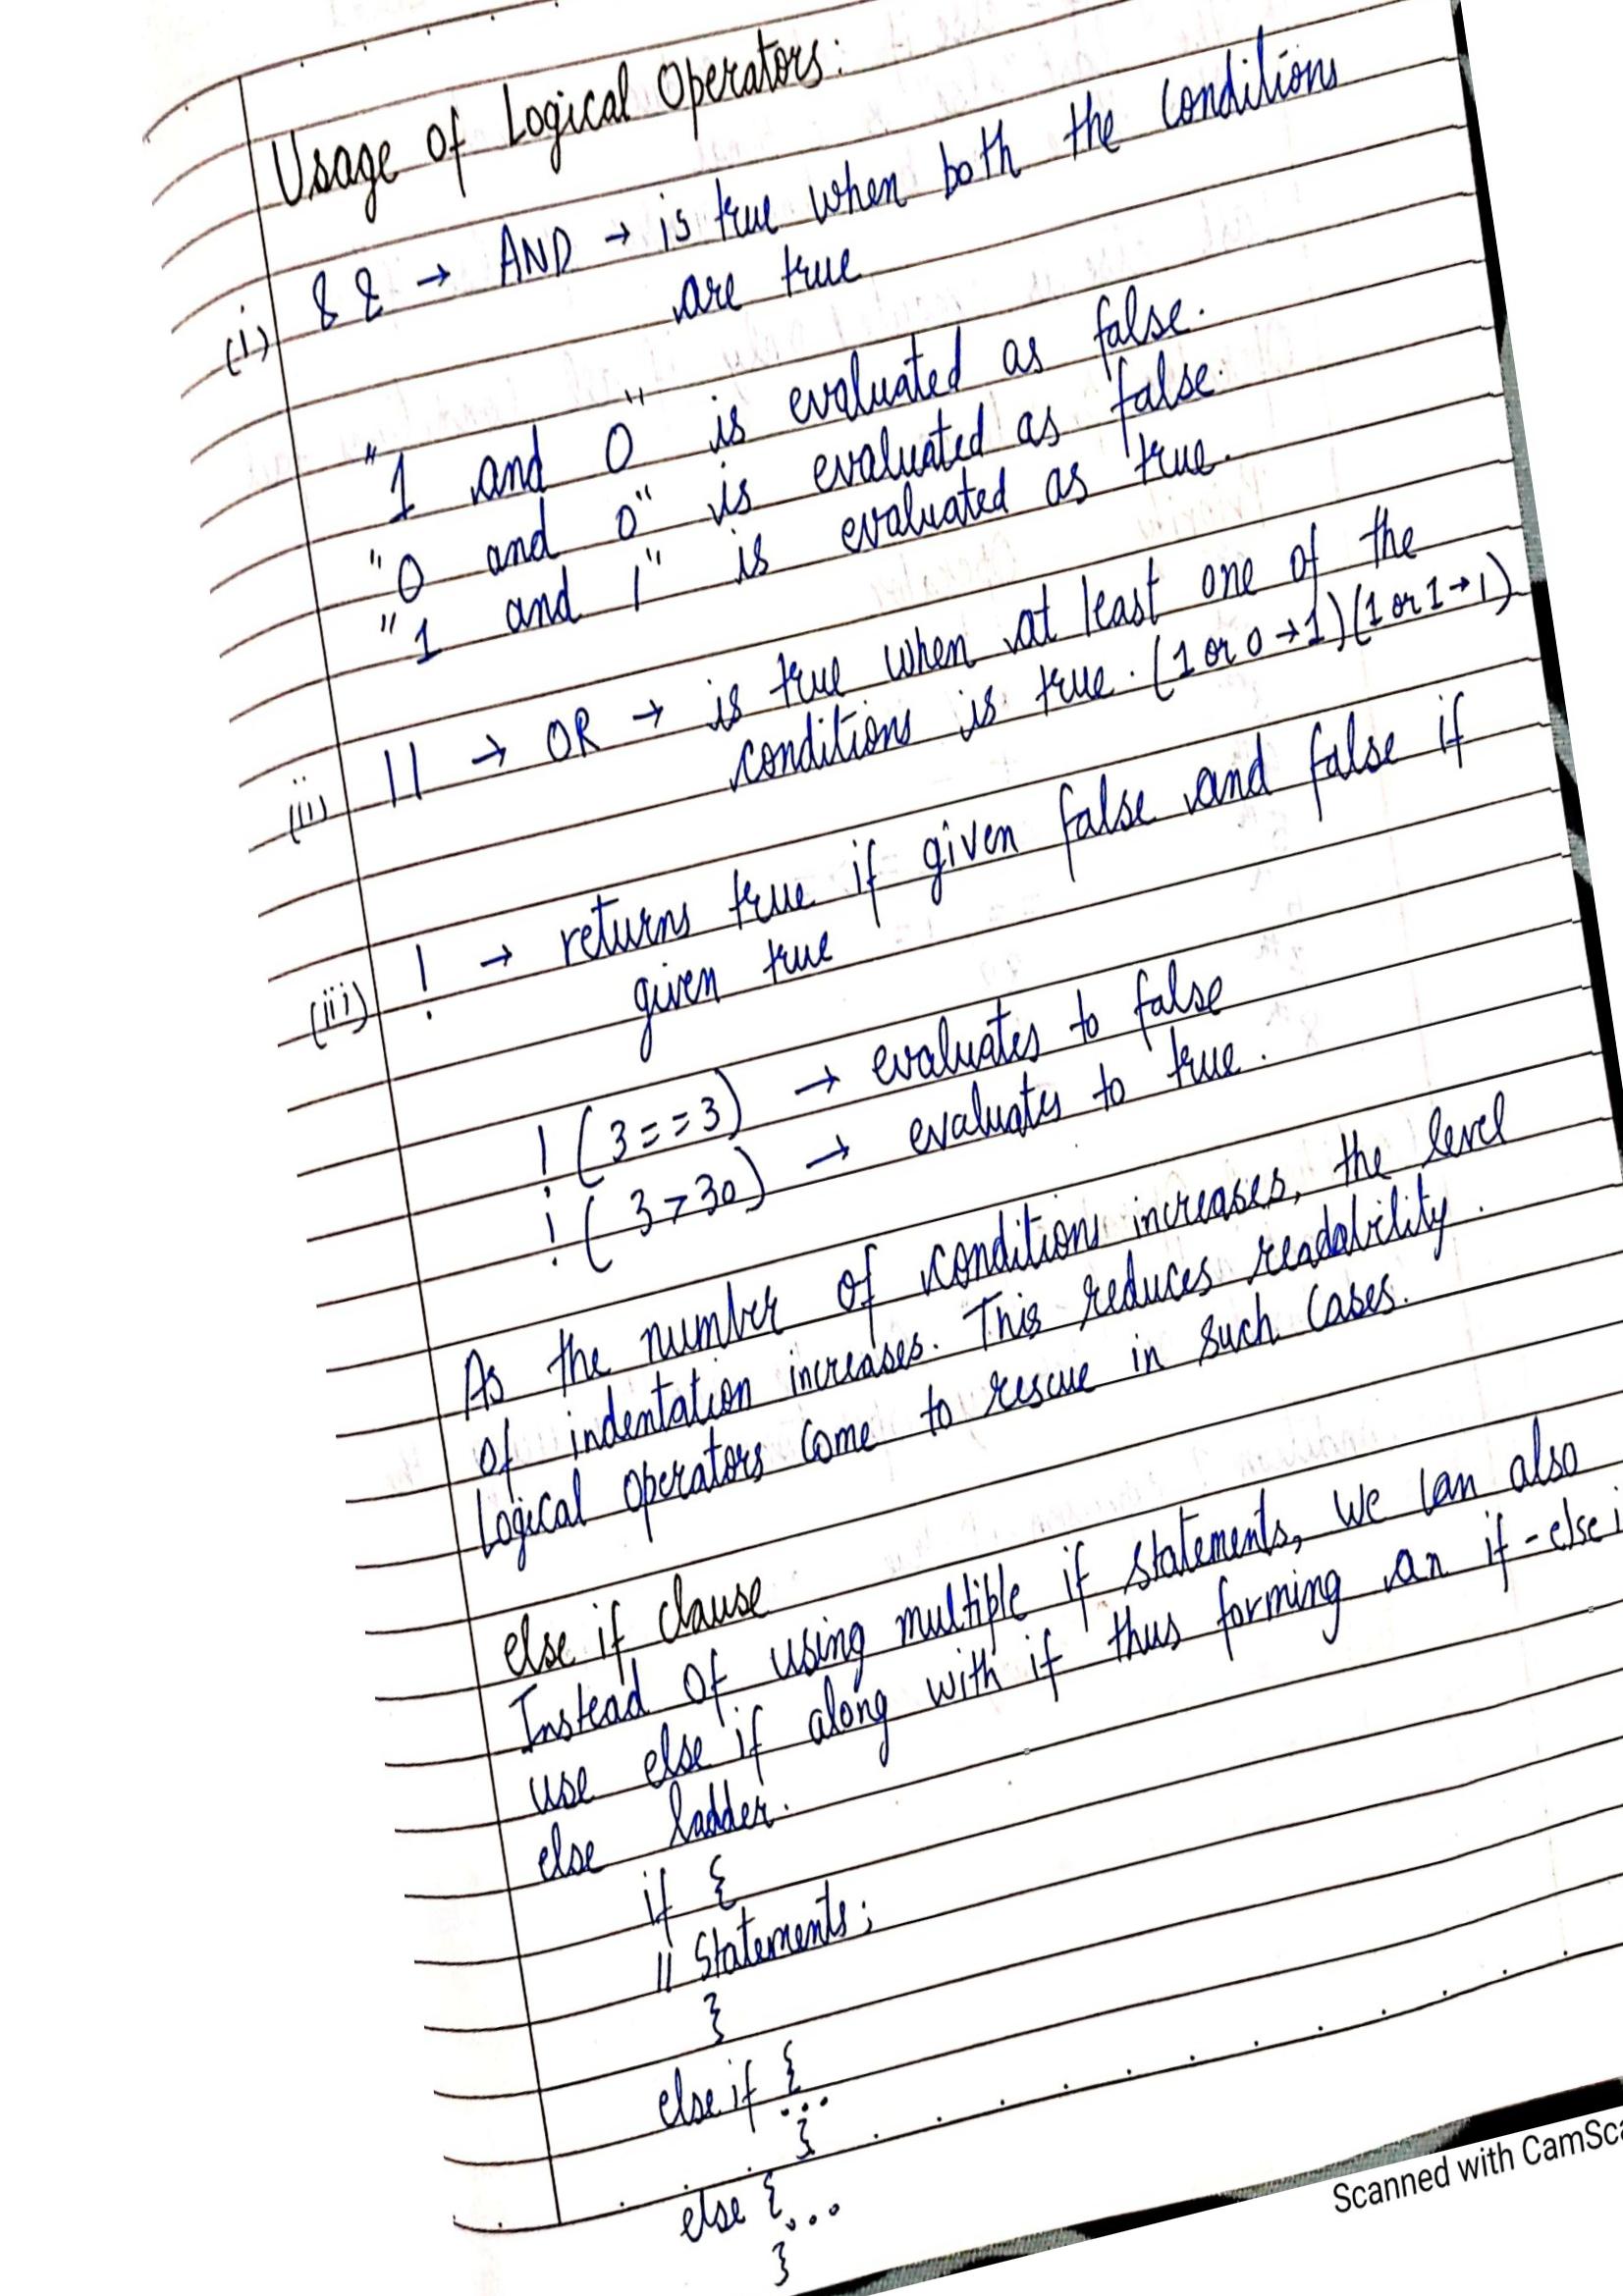 Usage of Logical Operators:
(i) && → AND → is true when both the conditions
are true
"1 and 0" is evaluated as false.
"0 and 0" is evaluated as false.
"1 and 1" is evaluated as true.
(ii) || → OR → is true when at least one of the
conditions is true. (1 or 0 → 1) (1 or 1 → 1)
(iii) ! → returns true if given false and false if
given true
! (3==3) → evaluates to false
! (3>30) → evaluates to true.
As the number of conditions increases, the level
of indentation increases. This reduces readability.
Logical operators come to rescue in such cases.
else if clause
Instead of using multiple if statements, we can also
use else if along with if thus forming an if-else i
else ladder.
if {
// Statements;
}
else if {
...
}
else {
...
}
Scanned with CamSca